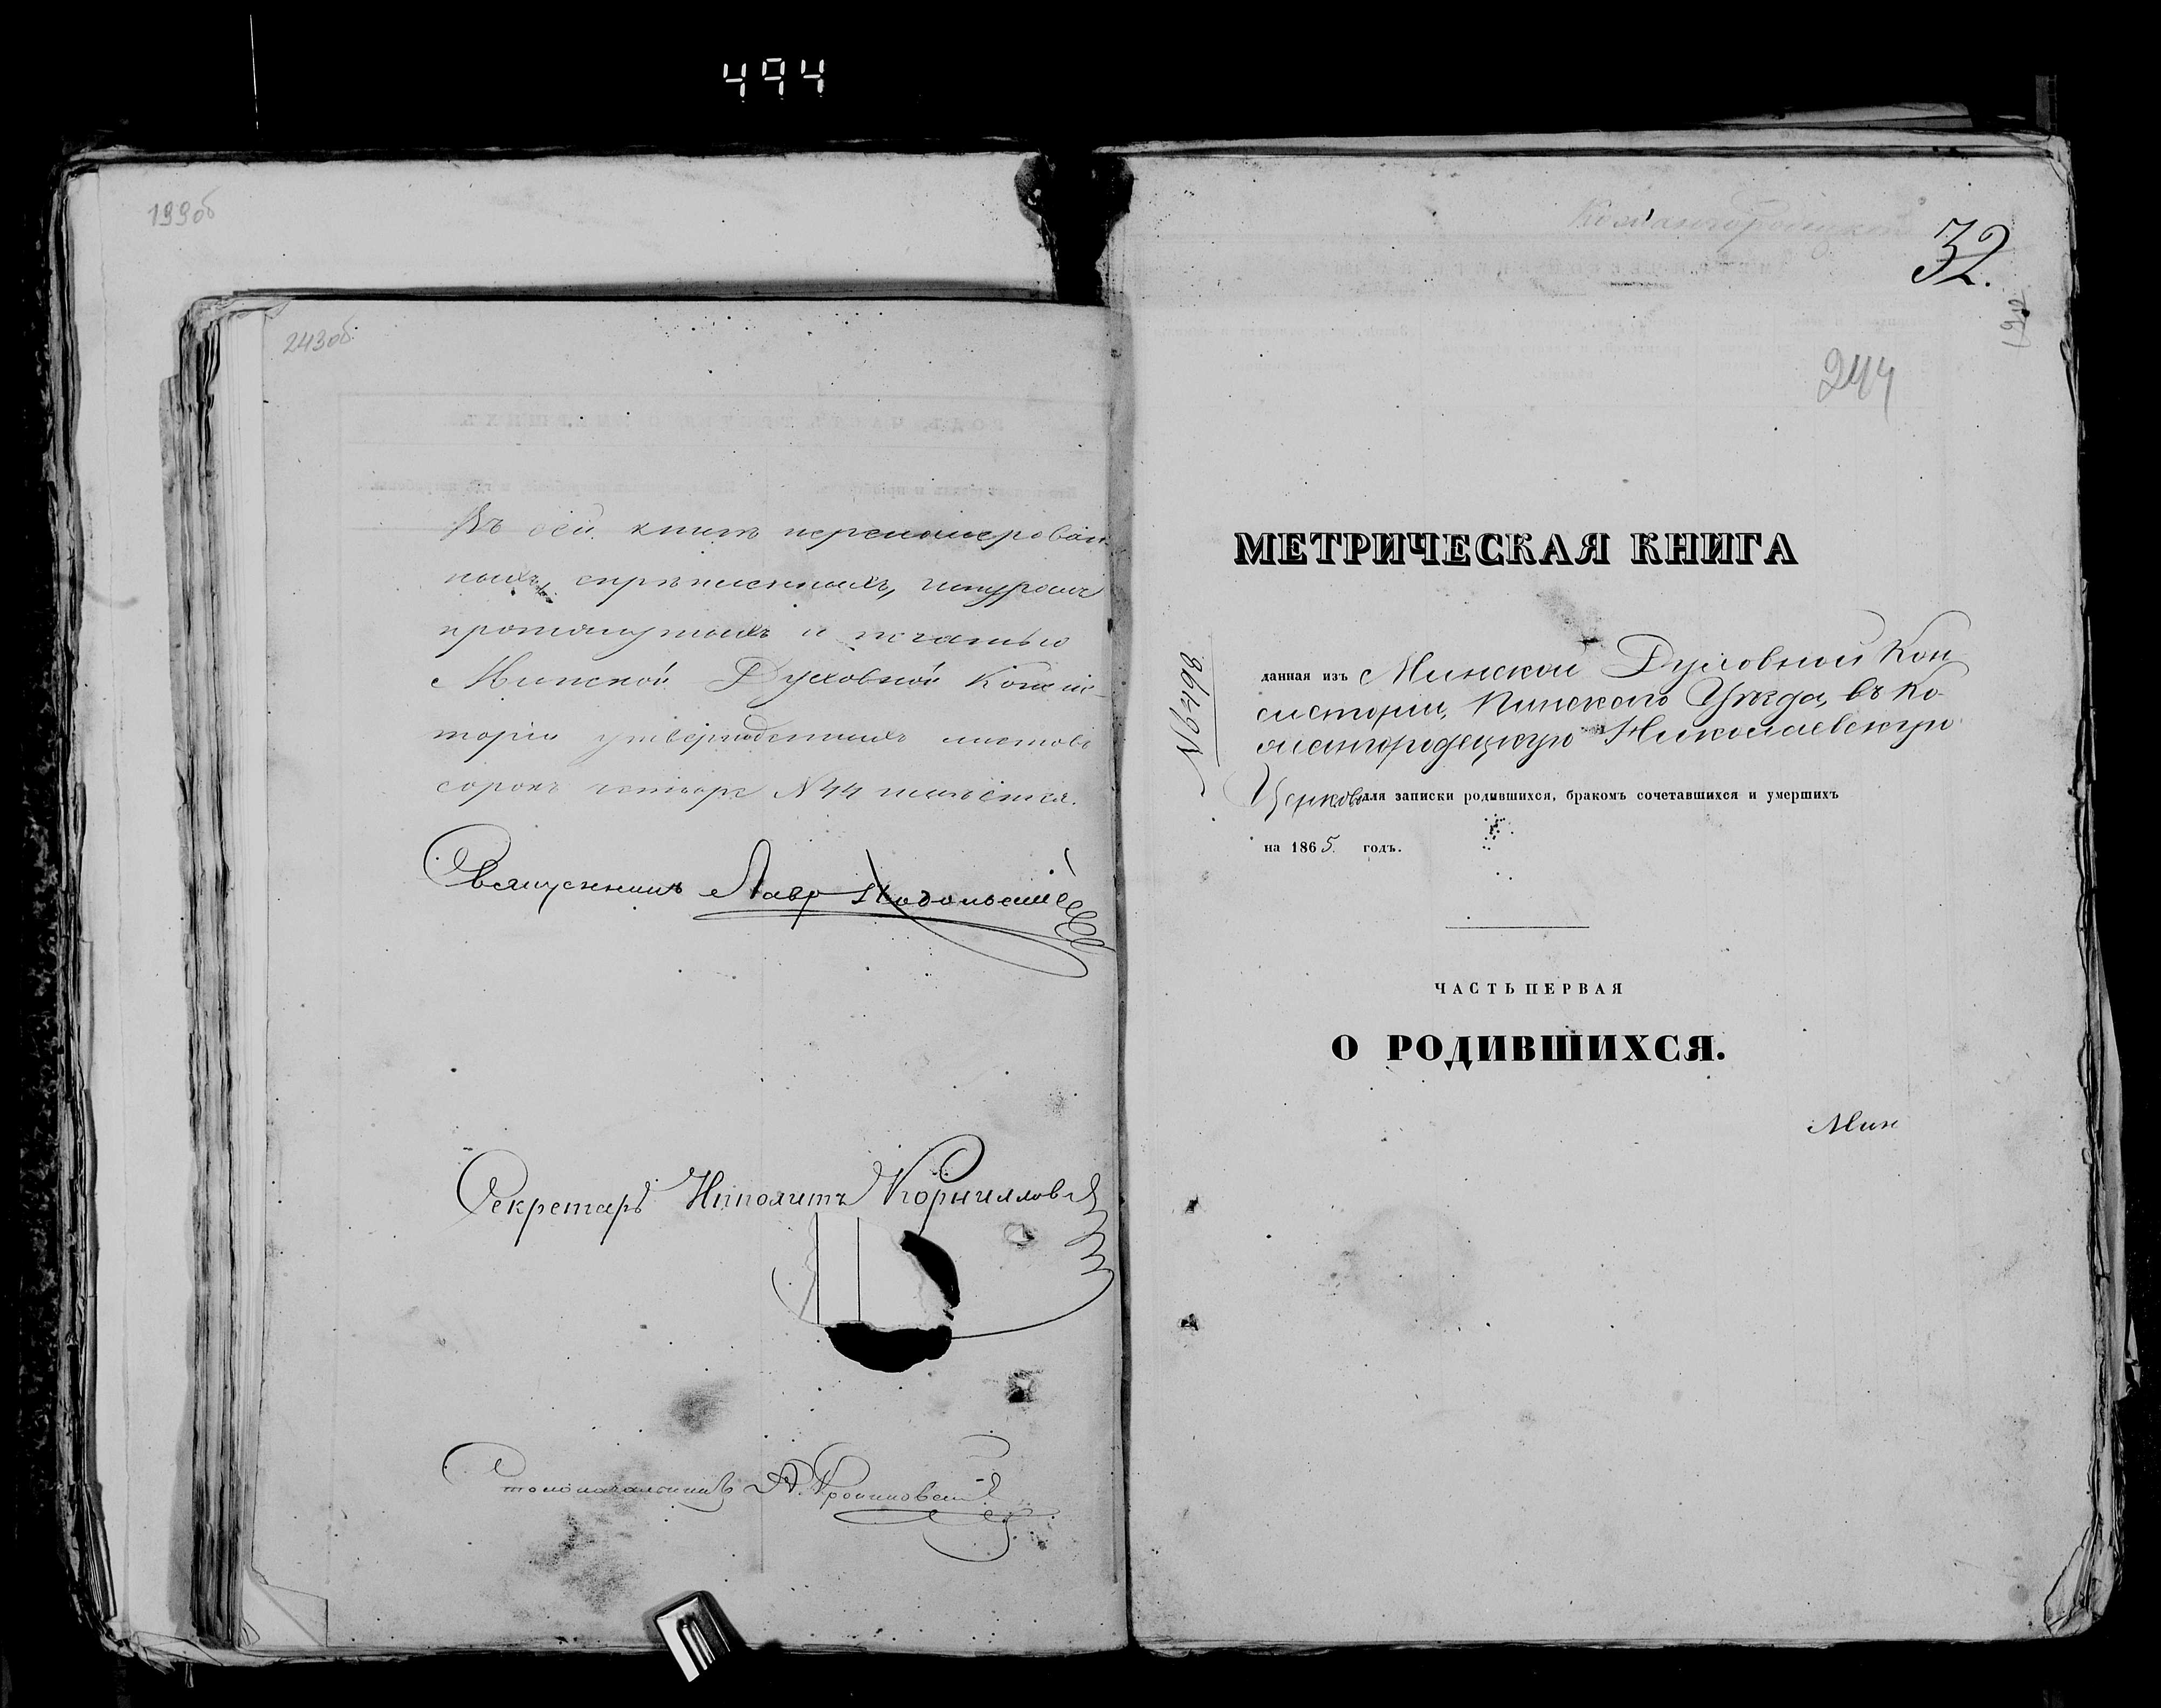 494
199об
243об.
Въ сей книгѣ перенумерован-
ныхъ, скрѣпленныхъ, шнуромъ
протянутыхъ и печатью
Минской Духовной Консис-
торіи утвержденныхъ листовъ
сорокъ четыре N 44
Священникъ Лавр
Секретарь Ипполитъ Корниллов
Столоначальникъ А.
32.
244
МЕТРИЧЕСКАЯ КНИГА
N 9498
данная изъ Минской Духовной Кон
систоріи, Пинскаго Уѣзда, въ Ко
жангородецкую Николаевскую
Церковь для записки родившихся, бракомъ сочетавшихся и умершихъ
на 1865 годъ.
ЧАСТЬ ПЕРВАЯ
О РОДИВШИХСЯ.
Мин